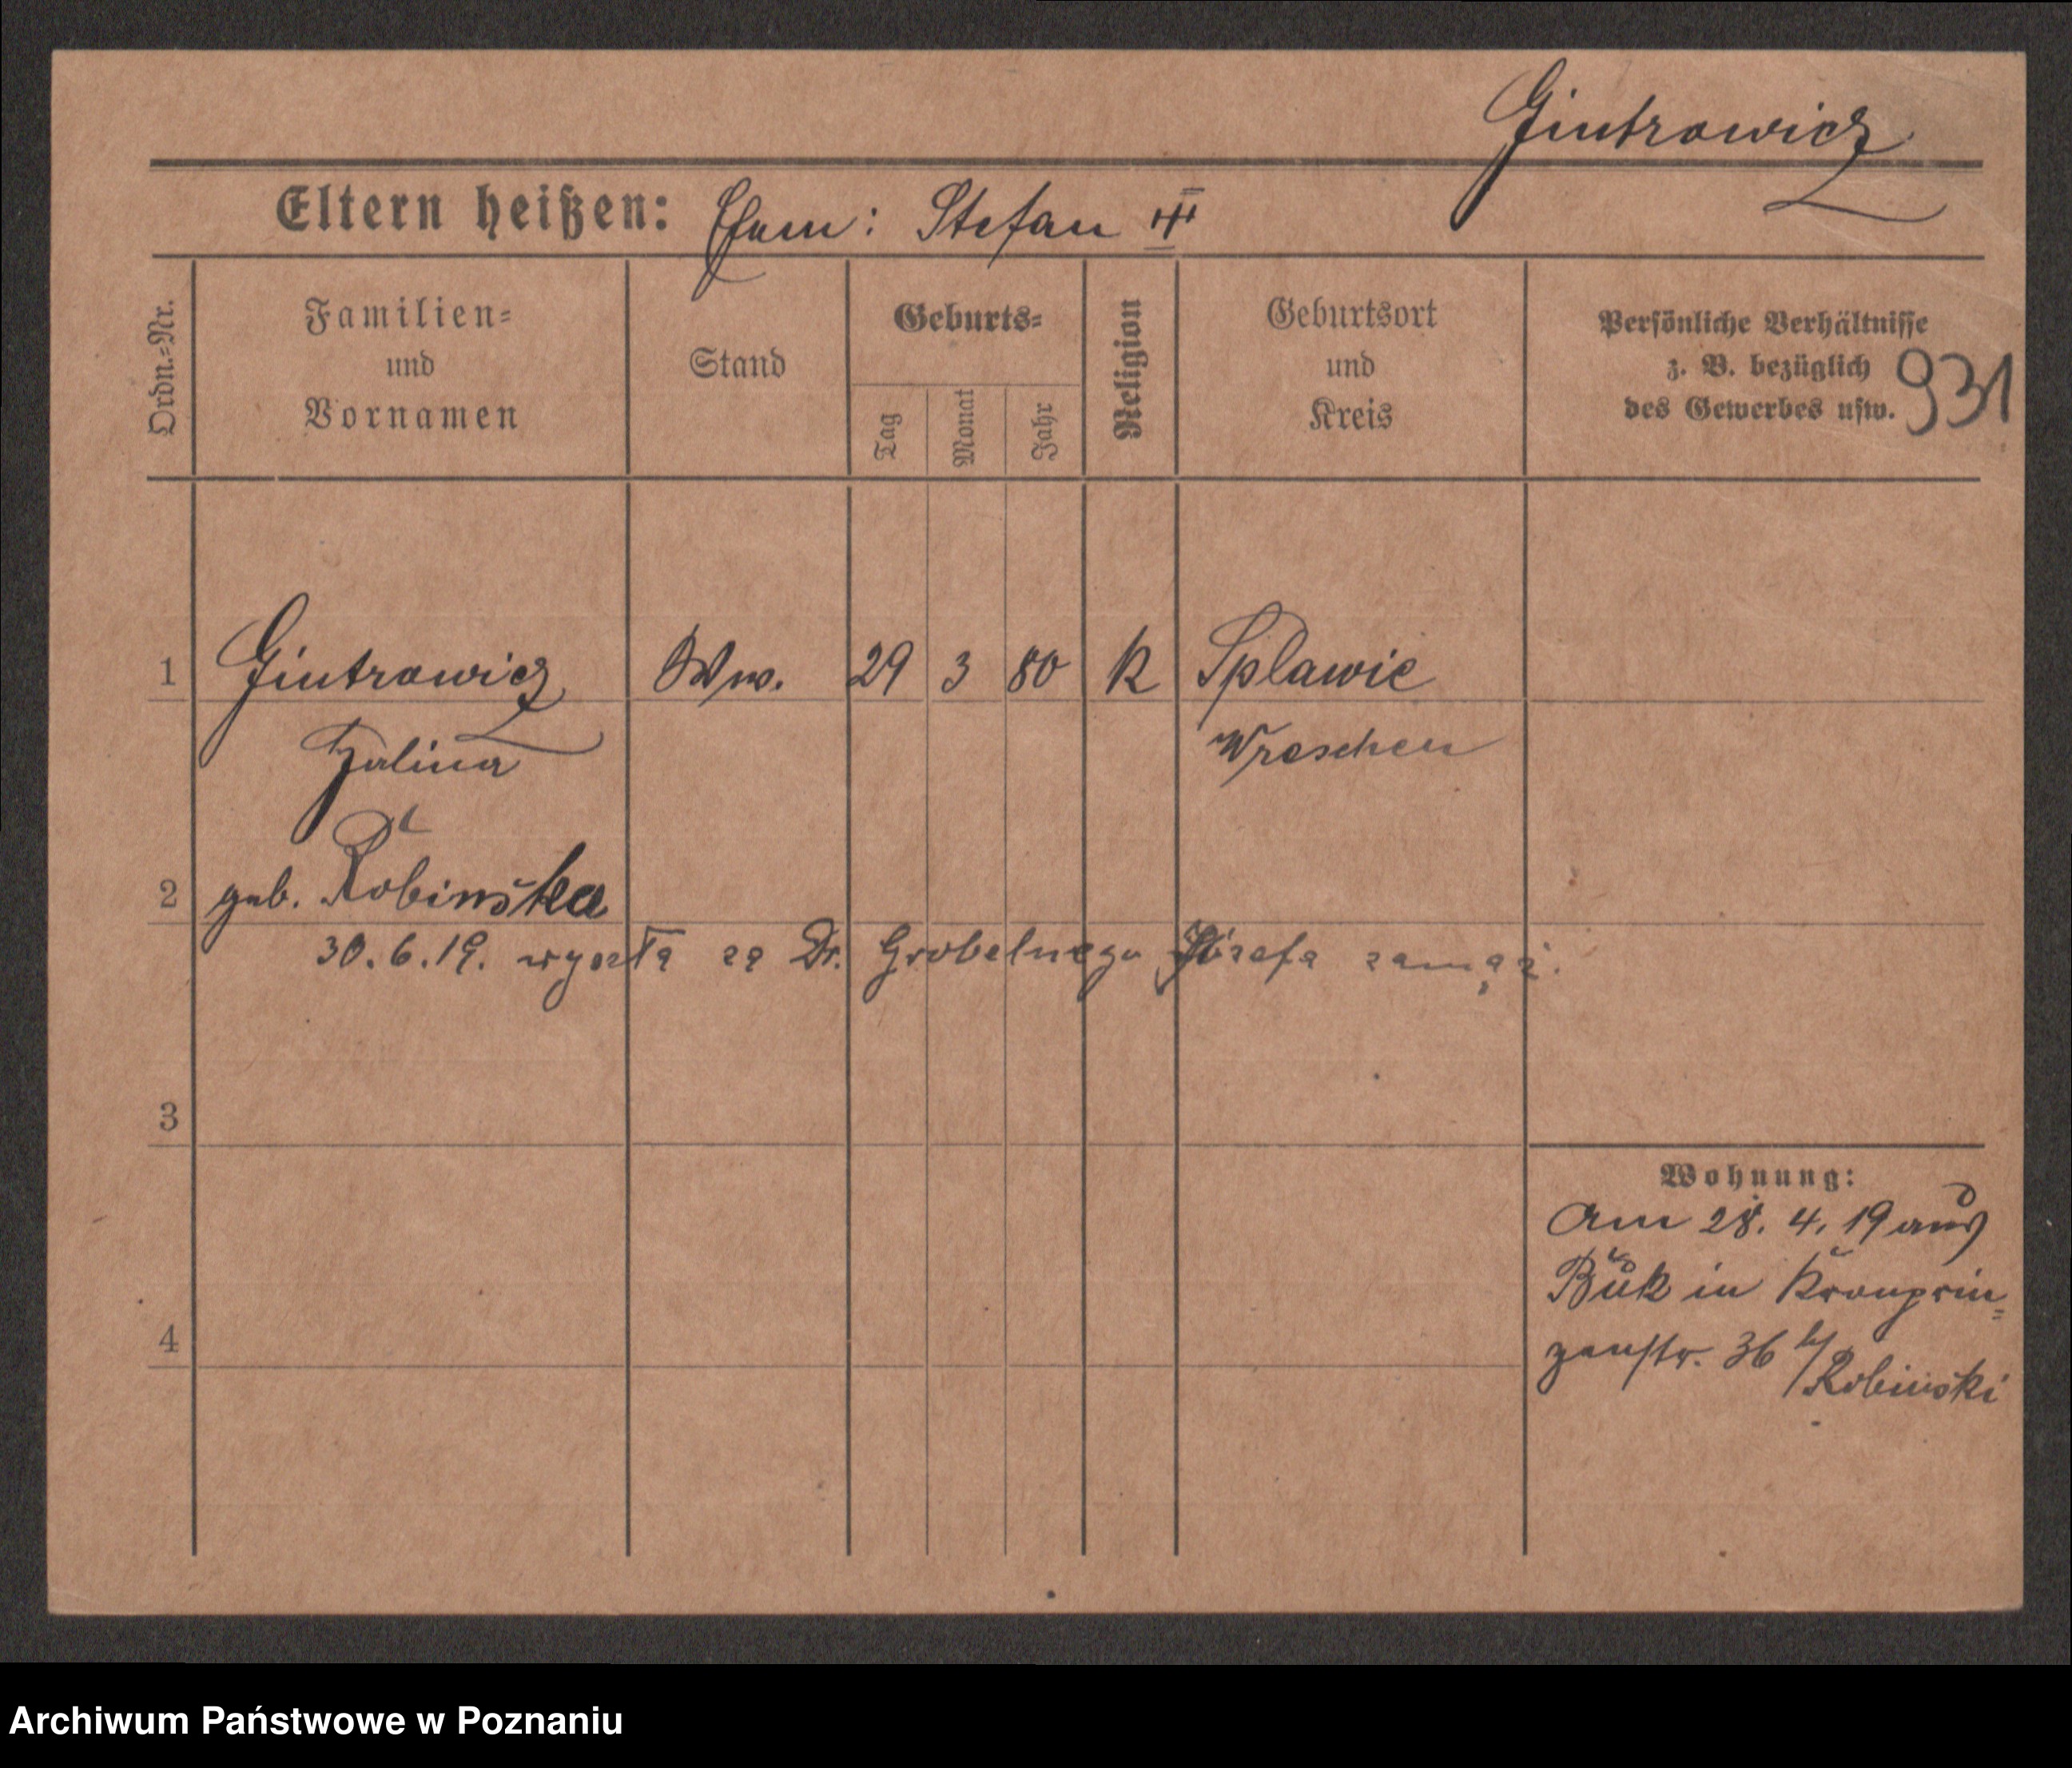 Gintrowicz
Eltern heißen: Ehem: Stefan III
Ordn.-Nr.
Familien-
und
Vornamen
Stand
Geburts-
Tag
Monat
Jahr
Religion
Geburtsort
und
Kreis
Persönliche Verhältnisse
z. B. bezüglich
des Gewerbes usw.
931
1 Gintrowicz Ww. 29 3 80 K Splawie
Halina Wreschen
2 geb. Robinska
30.6.19. wyszła za Dr. Grobelnego Józefa zamąż.
3
Wohnung:
Am 28. 4. 19 aus
Buk in Kronprin-
4
zenstr. 36 b/
Robinski
Archiwum Państwowe w Poznaniu